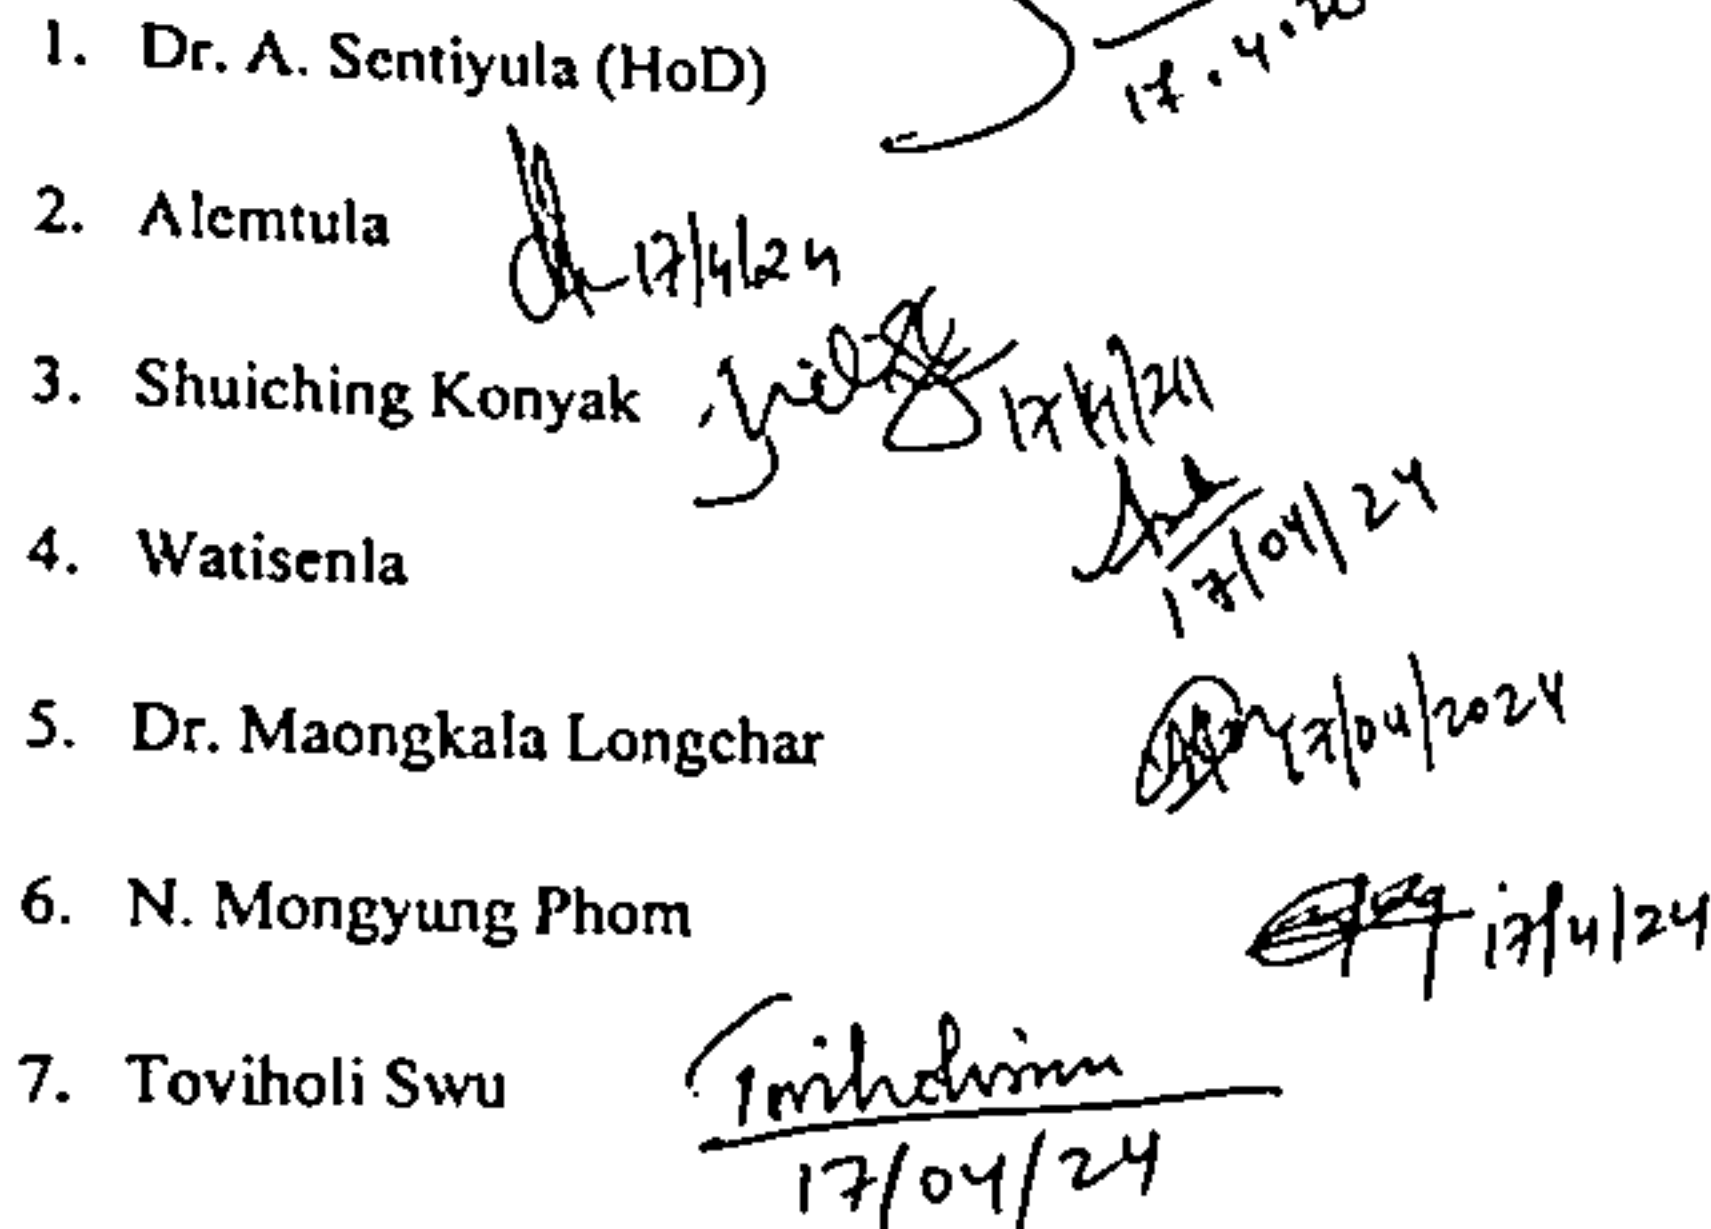 1. Dr. A. Sentiyula (HoD)
17.4.20
2. Alemtula
17/4/24
3. Shuiching Konyak 17/4/24
4. Watisenla
17/04/24
5. Dr. Maongkala Longchar 17/04/2024
6. N. Mongyung Phom 17/4/24
7. Toviholi Swu
17/04/24